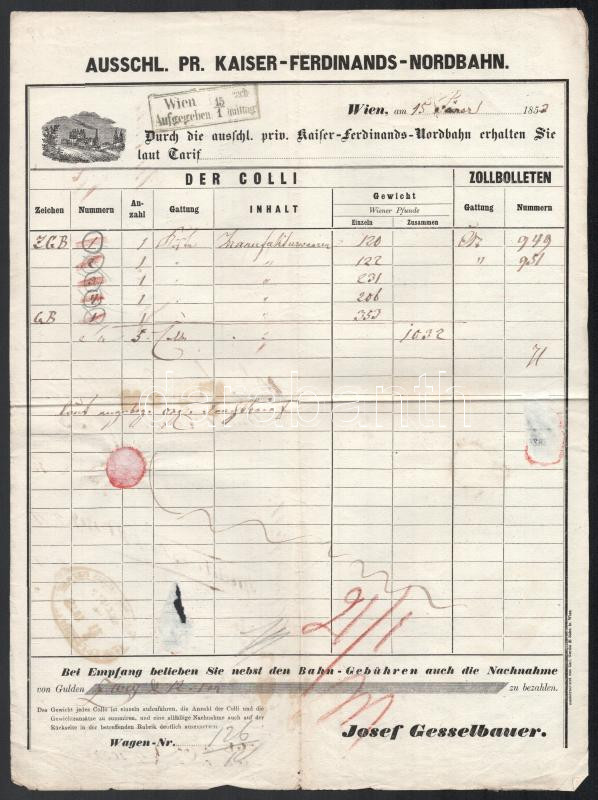 AUSSCHL. PR. KAISER-FERDINANDS-NORDBAHN.
Wien 15
Aufgegeben 1
Wien, am 15 1853
Durch die ausschl. priv. Kaiser-Ferdinands-Nordbahn erhalten Sie
laut Tarif
DER COLLI ZOLLBOLLETEN
Zeichen Nummern An-zahl Gattung INHALT Gewicht Wiener Pfunde Einzeln Zusammen Gattung Nummern
JGB 1 1 Manufakturwaaren 120 949
2 1 " 122 " 951
3 1 " 231
4 1 " 206
GB 1 1 " 353
5 Colli " 1032
71
darabanth
Bei Empfang belieben Sie nebst den Bahn-Gebühren auch die Nachnahme
von Gulden zu bezahlen.
Das Gewicht jedes Collo ist einzeln aufzuführen, die Anzahl der Colli und die
Gewichtsansätze zu summiren, und eine allfällige Nachnahme auch auf der
Rückseite in der betreffenden Rubrik deutlich anzusetzen.
Josef Gesselbauer.
Wagen-Nr. 126